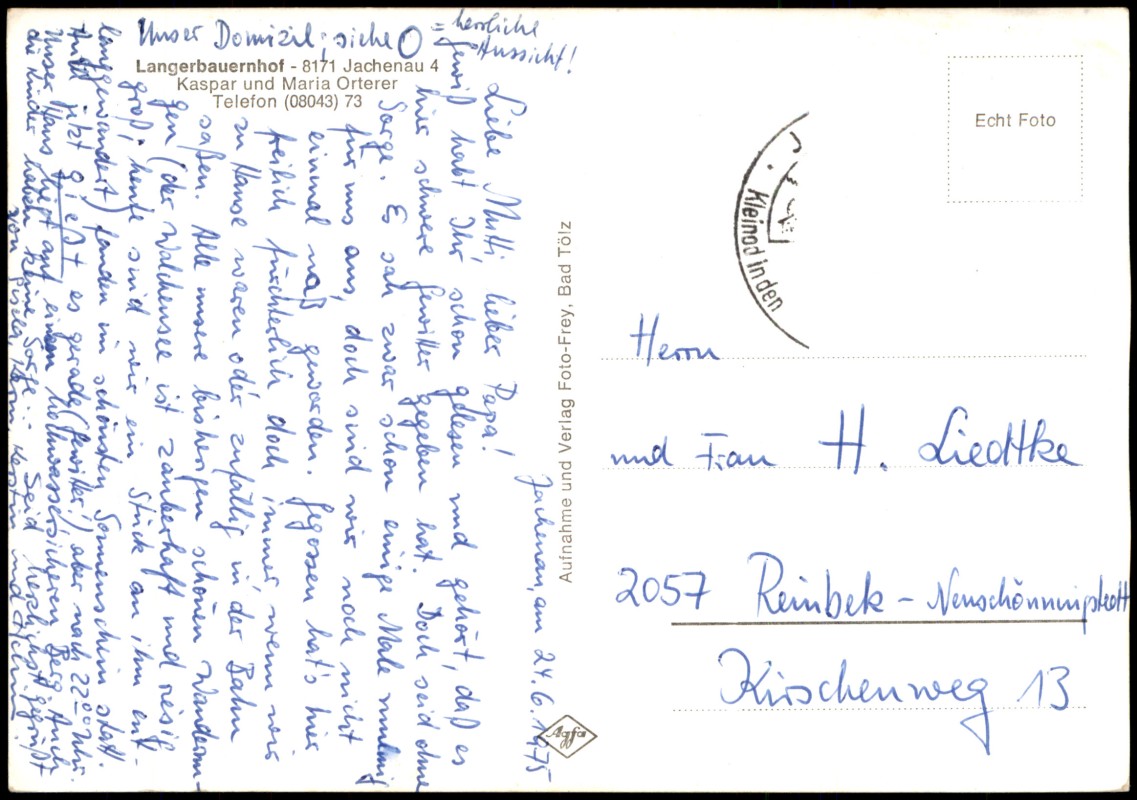 Unser Domizil; siehe O = herrliche Aussicht!
Langerbauernhof - 8171 Jachenau 4
Kaspar und Maria Orterer
Telefon (08043) 73
Jachenau, am 24.6.1975
Liebe Mutti, lieber Papa!
Gewiß habt Ihr schon gelesen und gehört, daß es
hier schwere Gewitter gegeben hat. Doch seid ohne
Sorge. Es sah zwar schon einige Male mulmig
für uns aus, doch sind wir noch nicht
einmal naß geworden. Gegossen hat's hier
freilich fürchterlich doch immer, wenn wir
zu Hause waren oder zufällig in der Bahn
saßen. Alle unsere bisherigen schönen Wanderun-
gen (der Walchensee ist zauberhaft und riesig
groß; heute sind wir ein Stück an ihm ent-
langgewandert) fanden im schönsten Sonnenschein statt.
Auch jetzt gießt es gerade (Gewitter!) aber nach 22 00 Uhr.
Unser Haus liegt auf einem hochwassersicheren Berg. Auch
die Kinder haben keine Sorge. Seid herzlichst gegrüßt
von Gisela, Kerstin und
Aufnahme und Verlag Foto-Frey, Bad Tölz
Agfa
Echt Foto
Kleinod in den
Herrn
und Frau H. Liedtke
2057 Reinbek - Neuschönningstedt
Kirschenweg 13